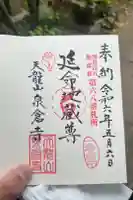 奉納 令和六年五月六日
第六八番札所
延命地蔵尊
天龍山泉倉寺